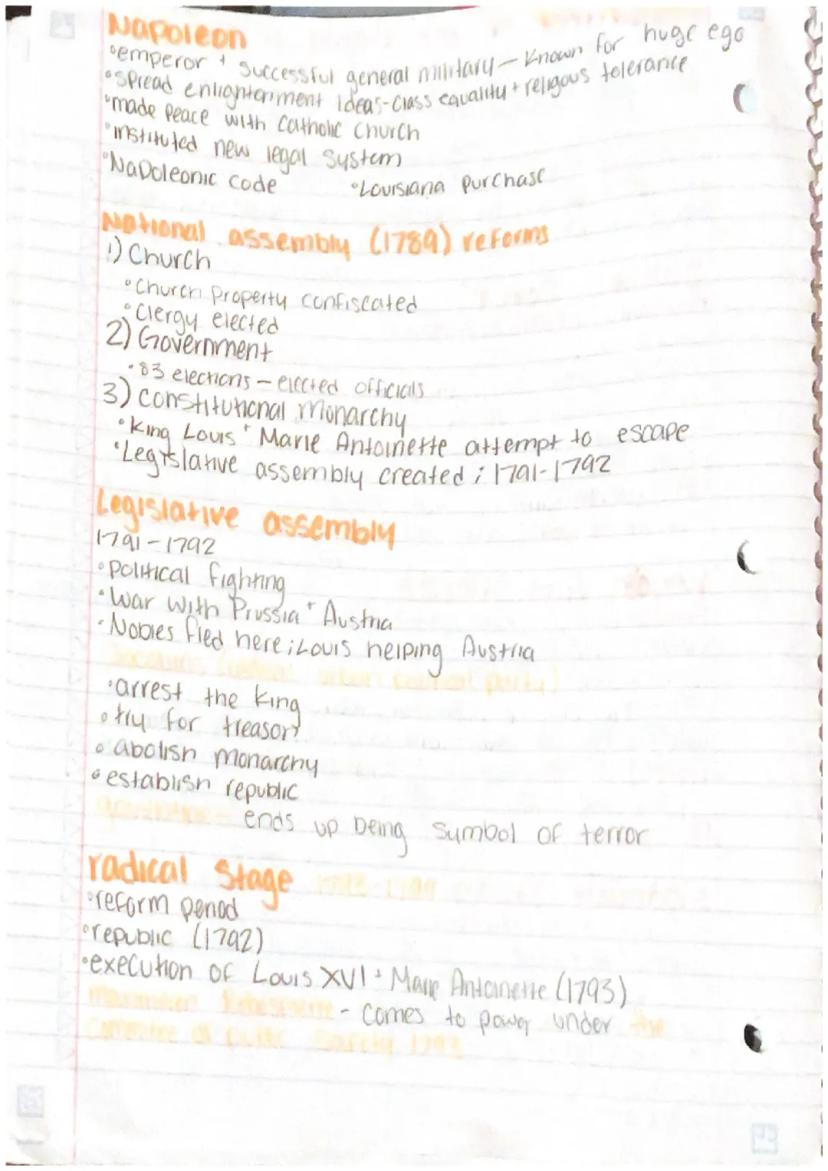 Napoleon
°emperor + successful general military - known for huge ego
°spread enlightenment ideas-class equality + religous tolerance
°made peace with Catholic Church
°instituted new legal system
°Napoleonic code °Louisiana purchase
National assembly (1789) reforms
1) Church
°Church Property confiscated
°Clergy elected
2) Government
°83 elections - elected officials
3) constitutional monarchy
°King Louis + Marie Antoinette attempt to escape
°Legislative assembly created; 1791-1792
Legislative assembly
1791-1792
°political fighting
°war with Prussia + Austria
°Nobles fled here; Louis helping Austria
Jacobins (radical urban political party)
°arrest the king
°try for treason
°abolish monarchy
°establish republic
guillotine - ends up being symbol of terror
radical stage 1793-1794
°reform period
°republic (1792)
°execution of Louis XVI + Marie Antoinette (1793)
Maximilien Robespierre - comes to power under the
committee of public safety 1793